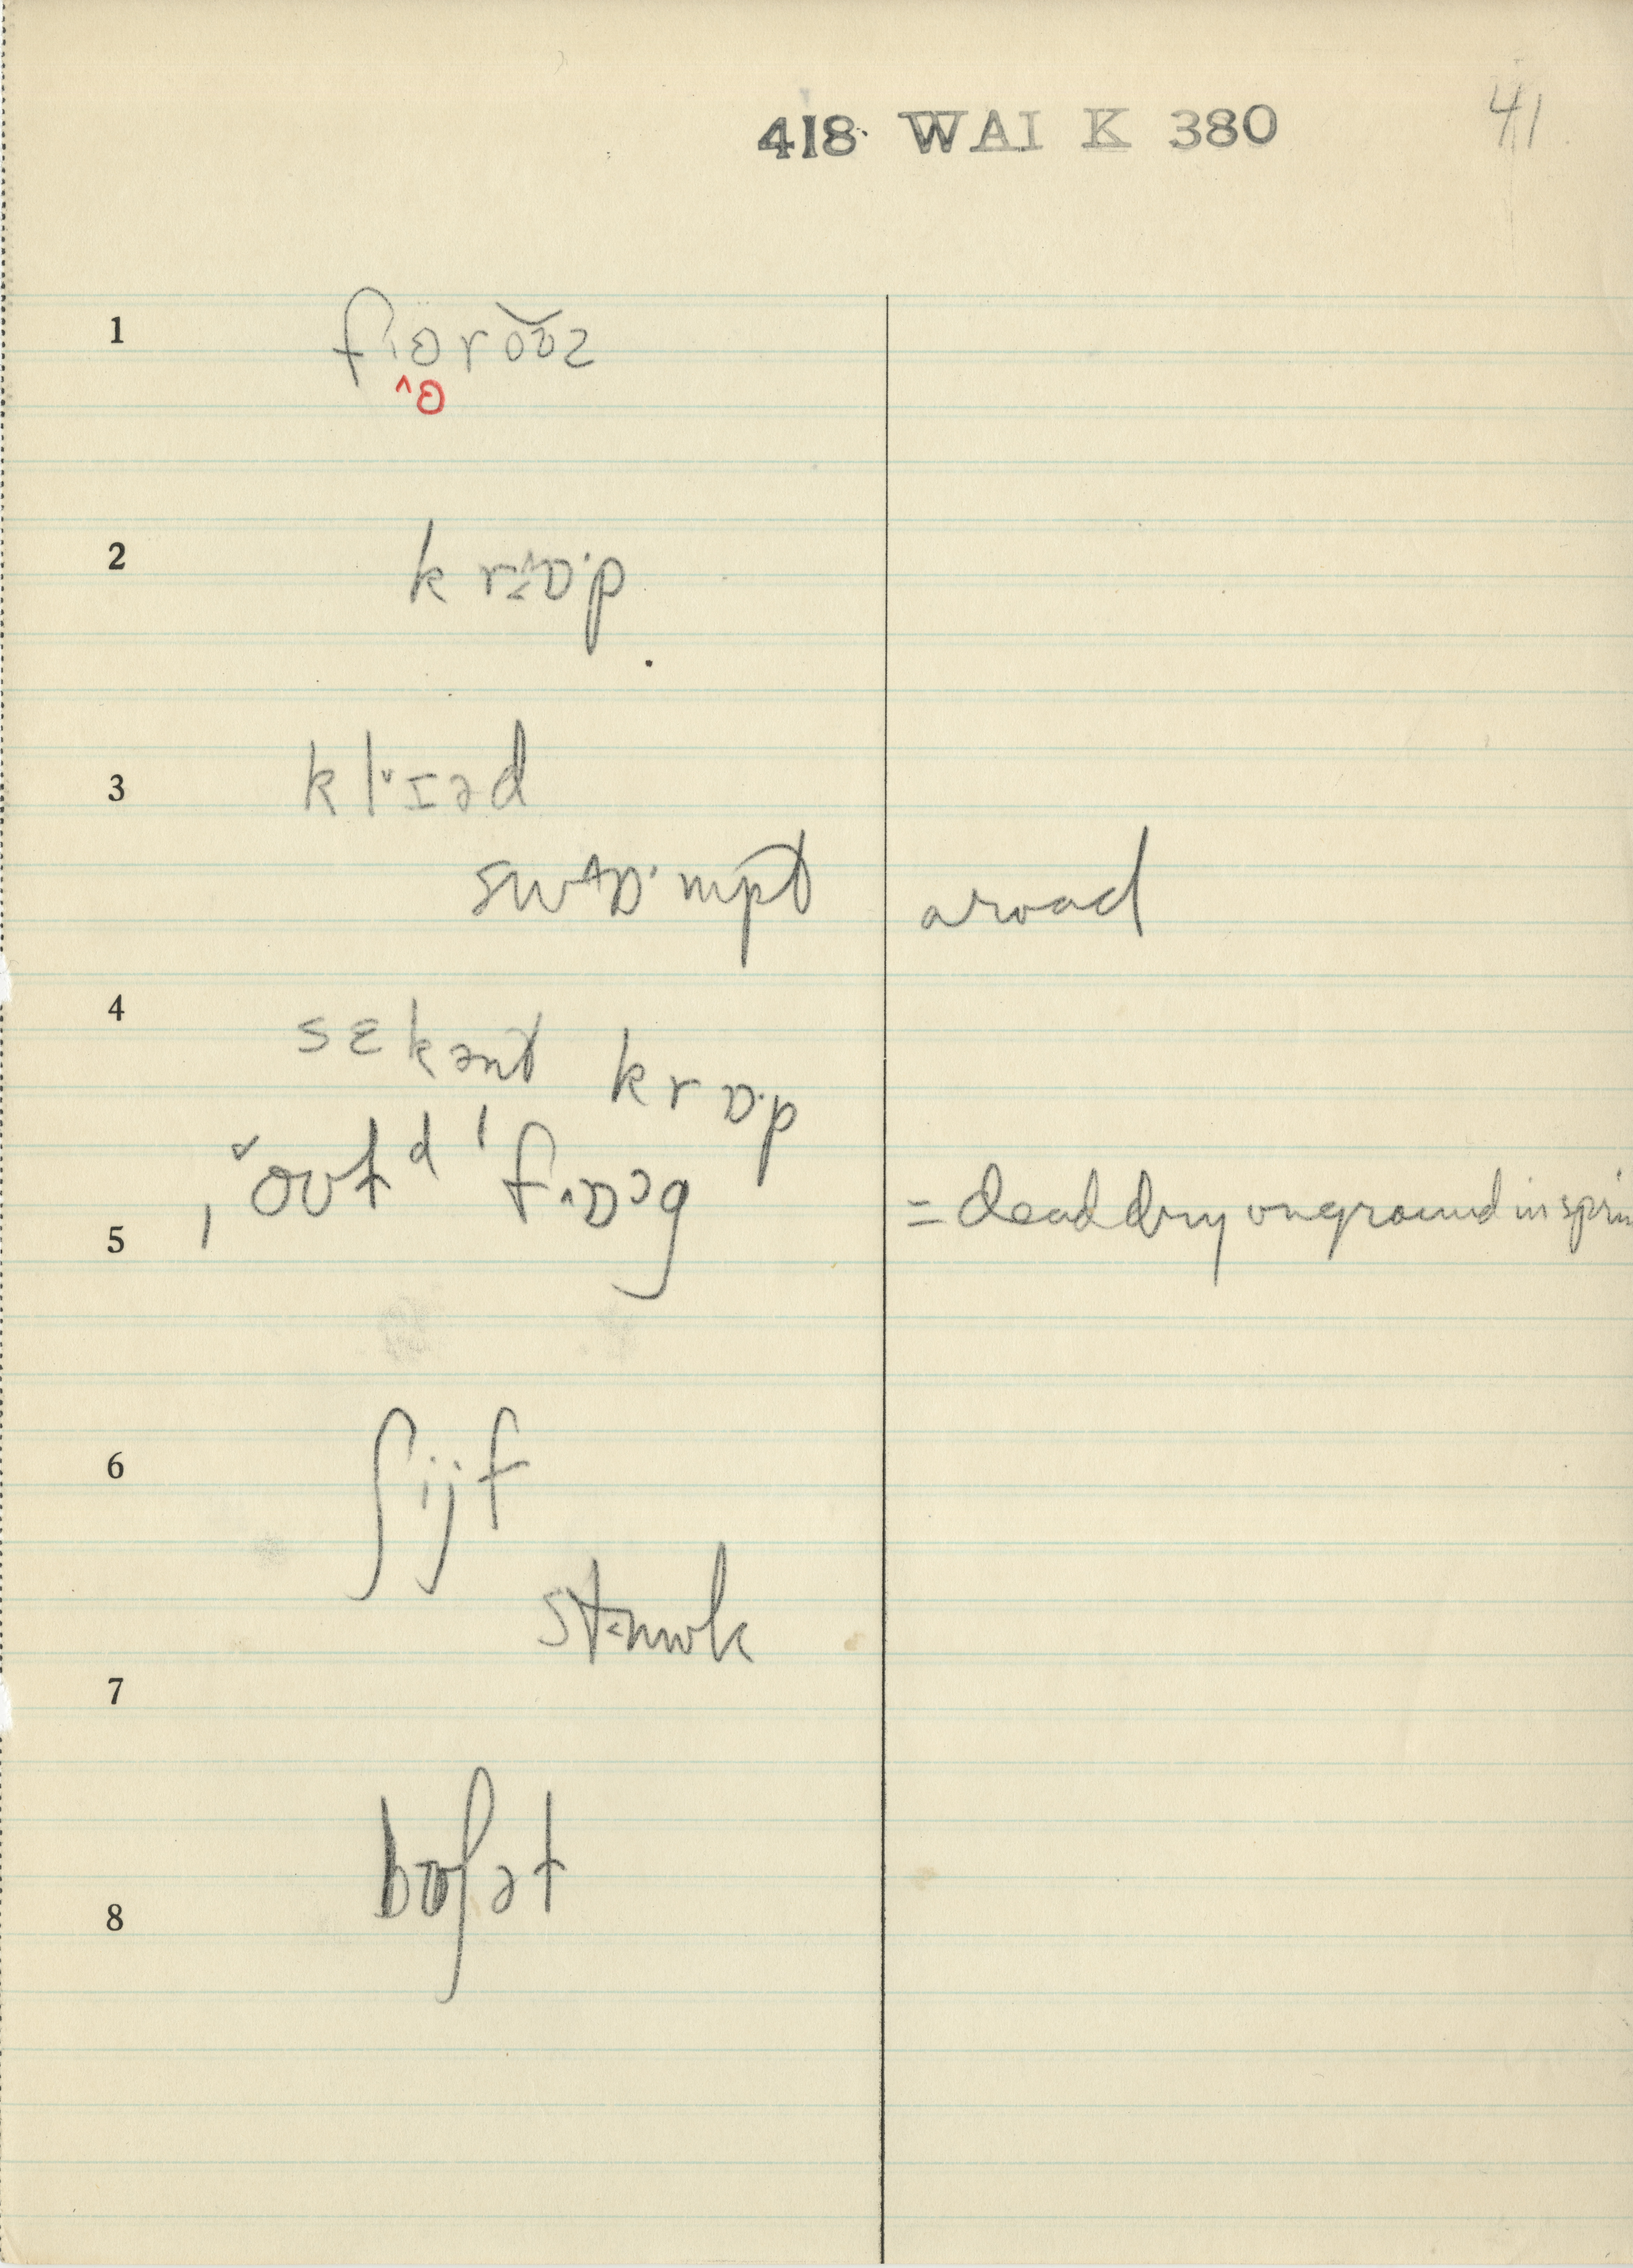 418 WAI K 380 41
1 fɪɵroʊz
ɵ
2 krɒ·p
3 klɪəd
swɒ·mpt a road
4 sɛkənd krɒ·p
5 ˌoʊɫd ˈfɒɔg = dead dry on ground in sprin
6 ʃijf
7
bʊʃət
8